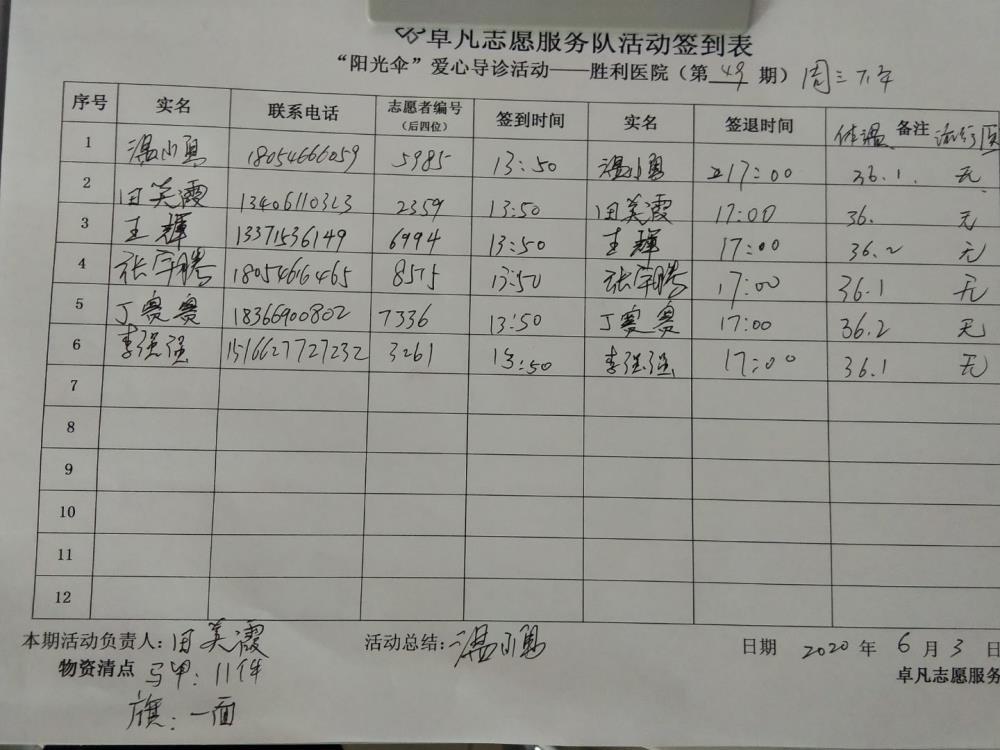 卓凡志愿服务队活动签到表
“阳光伞”爱心导诊活动——胜利医院（第49期）周三下午
序号 实名 联系电话 志愿者编号（后四位） 签到时间 实名 签退时间 体温 备注 流行
1 温小勇 18054666059 5985 13:50 温小勇 17:00 36.1. 无
2 田美霞 13406110323 2359 13:50 田美霞 17:00 36. 无
3 王辉 13371536149 6994 13:50 王辉 17:00 36.2 无
4 张宇腾 18054616465 8575 13:50 张宇腾 17:00 36.1 无
5 丁赛赛 18366900802 7336 13:50 丁赛赛 17:00 36.2 无
6 李强强 3261 13:50 李强强 17:00 36.1 无
7
8
9
10
11
12
本期活动负责人：田美霞 活动总结：温小勇 日期 2020 年 6 月 3 日
物资清点 马甲：11件 卓凡志愿服务
旗：一面